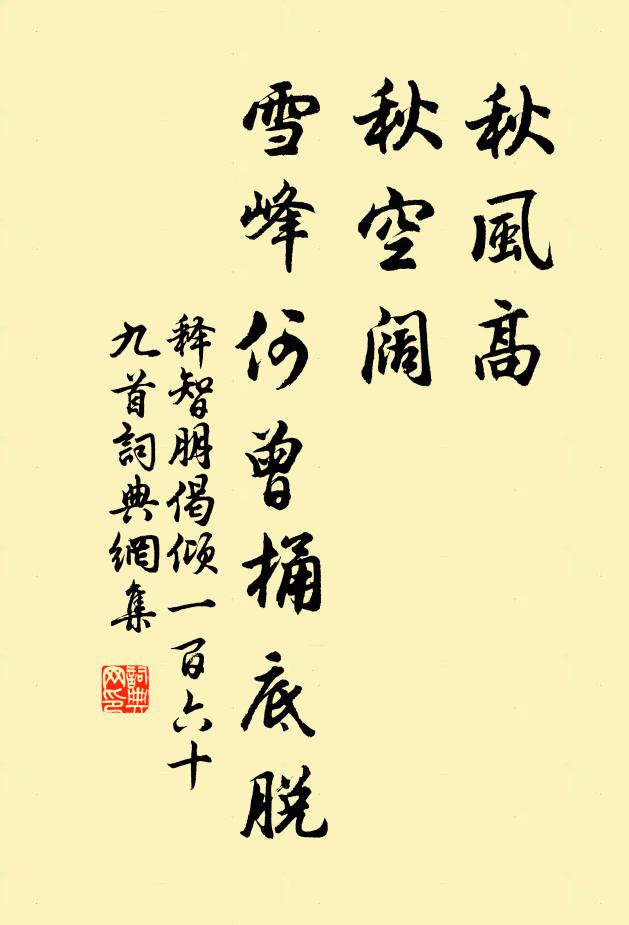 秋風高
秋空阔
雪峰何曾桶底脫
释智朋偈倾一百六十
九首詞典網集
詞典
网印